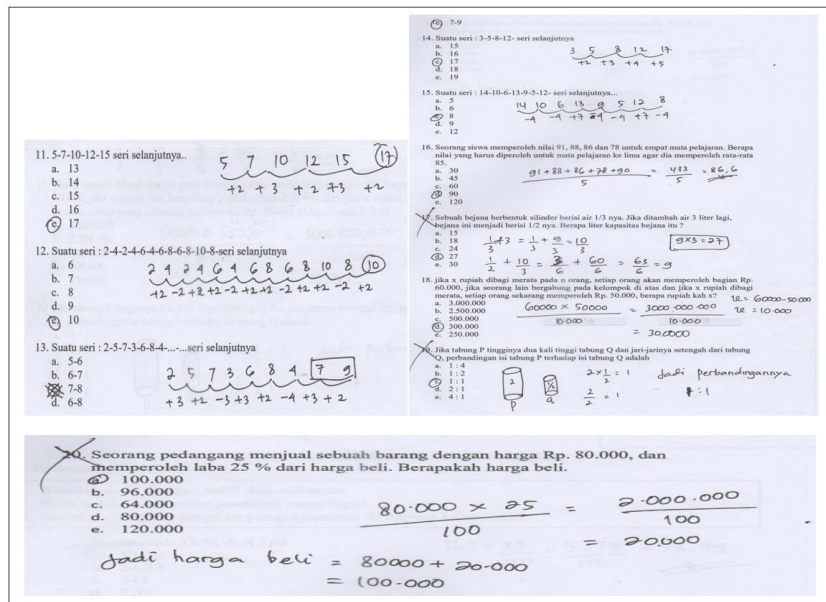 11. 5-7-10-12-15 seri selanjutnya..
a. 13
b. 14
c. 15
d. 16
e. 17
5 7 10 12 15 17
+2 +3 +2 +3 +2
12. Suatu seri : 2-4-2-4-6-4-6-8-6-8-10-8-seri selanjutnya
a. 6
b. 7
c. 8
d. 9
e. 10
2 4 2 4 6 4 6 8 6 8 10 8 10
+2 -2 +2 +2 -2 +2 +2 -2 +2 +2 -2 +2
13. Suatu seri : 2-5-7-3-6-8-4-...-...seri selanjutnya
a. 5-6
b. 6-7
7-8
d. 6-8
2 5 7 3 6 8 4 7 9
+3 +2 -3 +3 +2 -4 +3 +2
e. 7-9
14. Suatu seri : 3-5-8-12- seri selanjutnya
a. 15
b. 16
c. 17
d. 18
e. 19
3 5 8 12 17
+2 +3 +4 +5
15. Suatu seri : 14-10-6-13-9-5-12- seri selanjutnya...
a. 5
b. 6
c. 8
d. 9
e. 12
14 10 6 13 9 5 12 8
-4 -4 +7 -4 -4 +7 -4
16. Seorang siswa memperoleh nilai 91, 88, 86 dan 78 untuk empat mata pelajaran. Berapa
nilai yang harus diperoleh untuk mata pelajaran ke lima agar dia memperoleh rata-rata
85.
a. 30
b. 45
c. 60
d. 90
e. 120
91 + 88 + 86 + 78 + 90 = 433 = 86,6
5 5
17. Sebuah bejana berbentuk silinder berisi air 1/3 nya. Jika ditambah air 3 liter lagi,
bejana ini menjadi berisi 1/2 nya. Berapa liter kapasitas bejana itu ?
a. 15
b. 18
c. 24
d. 27
e. 30
1/3 + 3 = 1/3 + 9/3 = 10/3
9 x 3 = 27
1/2 + 10/3 = 3/6 + 60/6 = 63/6 = 9
18. jika x rupiah dibagi merata pada n orang, setiap orang akan memperoleh bagian Rp.
60.000, jika seorang lain bergabung pada kelompok di atas dan jika x rupiah dibagi
merata, setiap orang sekarang memperoleh Rp. 50.000, berapa rupiah kah x?
a. 3.000.000
b. 2.500.000
c. 500.000
d. 300.000
e. 250.000
= 60000-50000
= 10.000
60000 x 50000 = 3000.000.000
10.000 10.000
= 300000
19. Jika tabung P tingginya dua kali tinggi tabung Q dan jari-jarinya setengah dari tabung
Q, perbandingan isi tabung P terhadap isi tabung Q adalah
a. 1 : 4
b. 1 : 2
c. 1 : 1
d. 2 : 1
e. 4 : 1
2 1/2
P Q
2 x 1/2 = 1 Jadi perbandingannya
2/2 = 1 1:1
20. Seorang pedangang menjual sebuah barang dengan harga Rp. 80.000, dan
memperoleh laba 25 % dari harga beli. Berapakah harga beli.
a. 100.000
b. 96.000
c. 64.000
d. 80.000
e. 120.000
80.000 x 25 = 2.000.000
100 100
= 20.000
Jadi harga beli = 80000 + 20.000
= 100.000